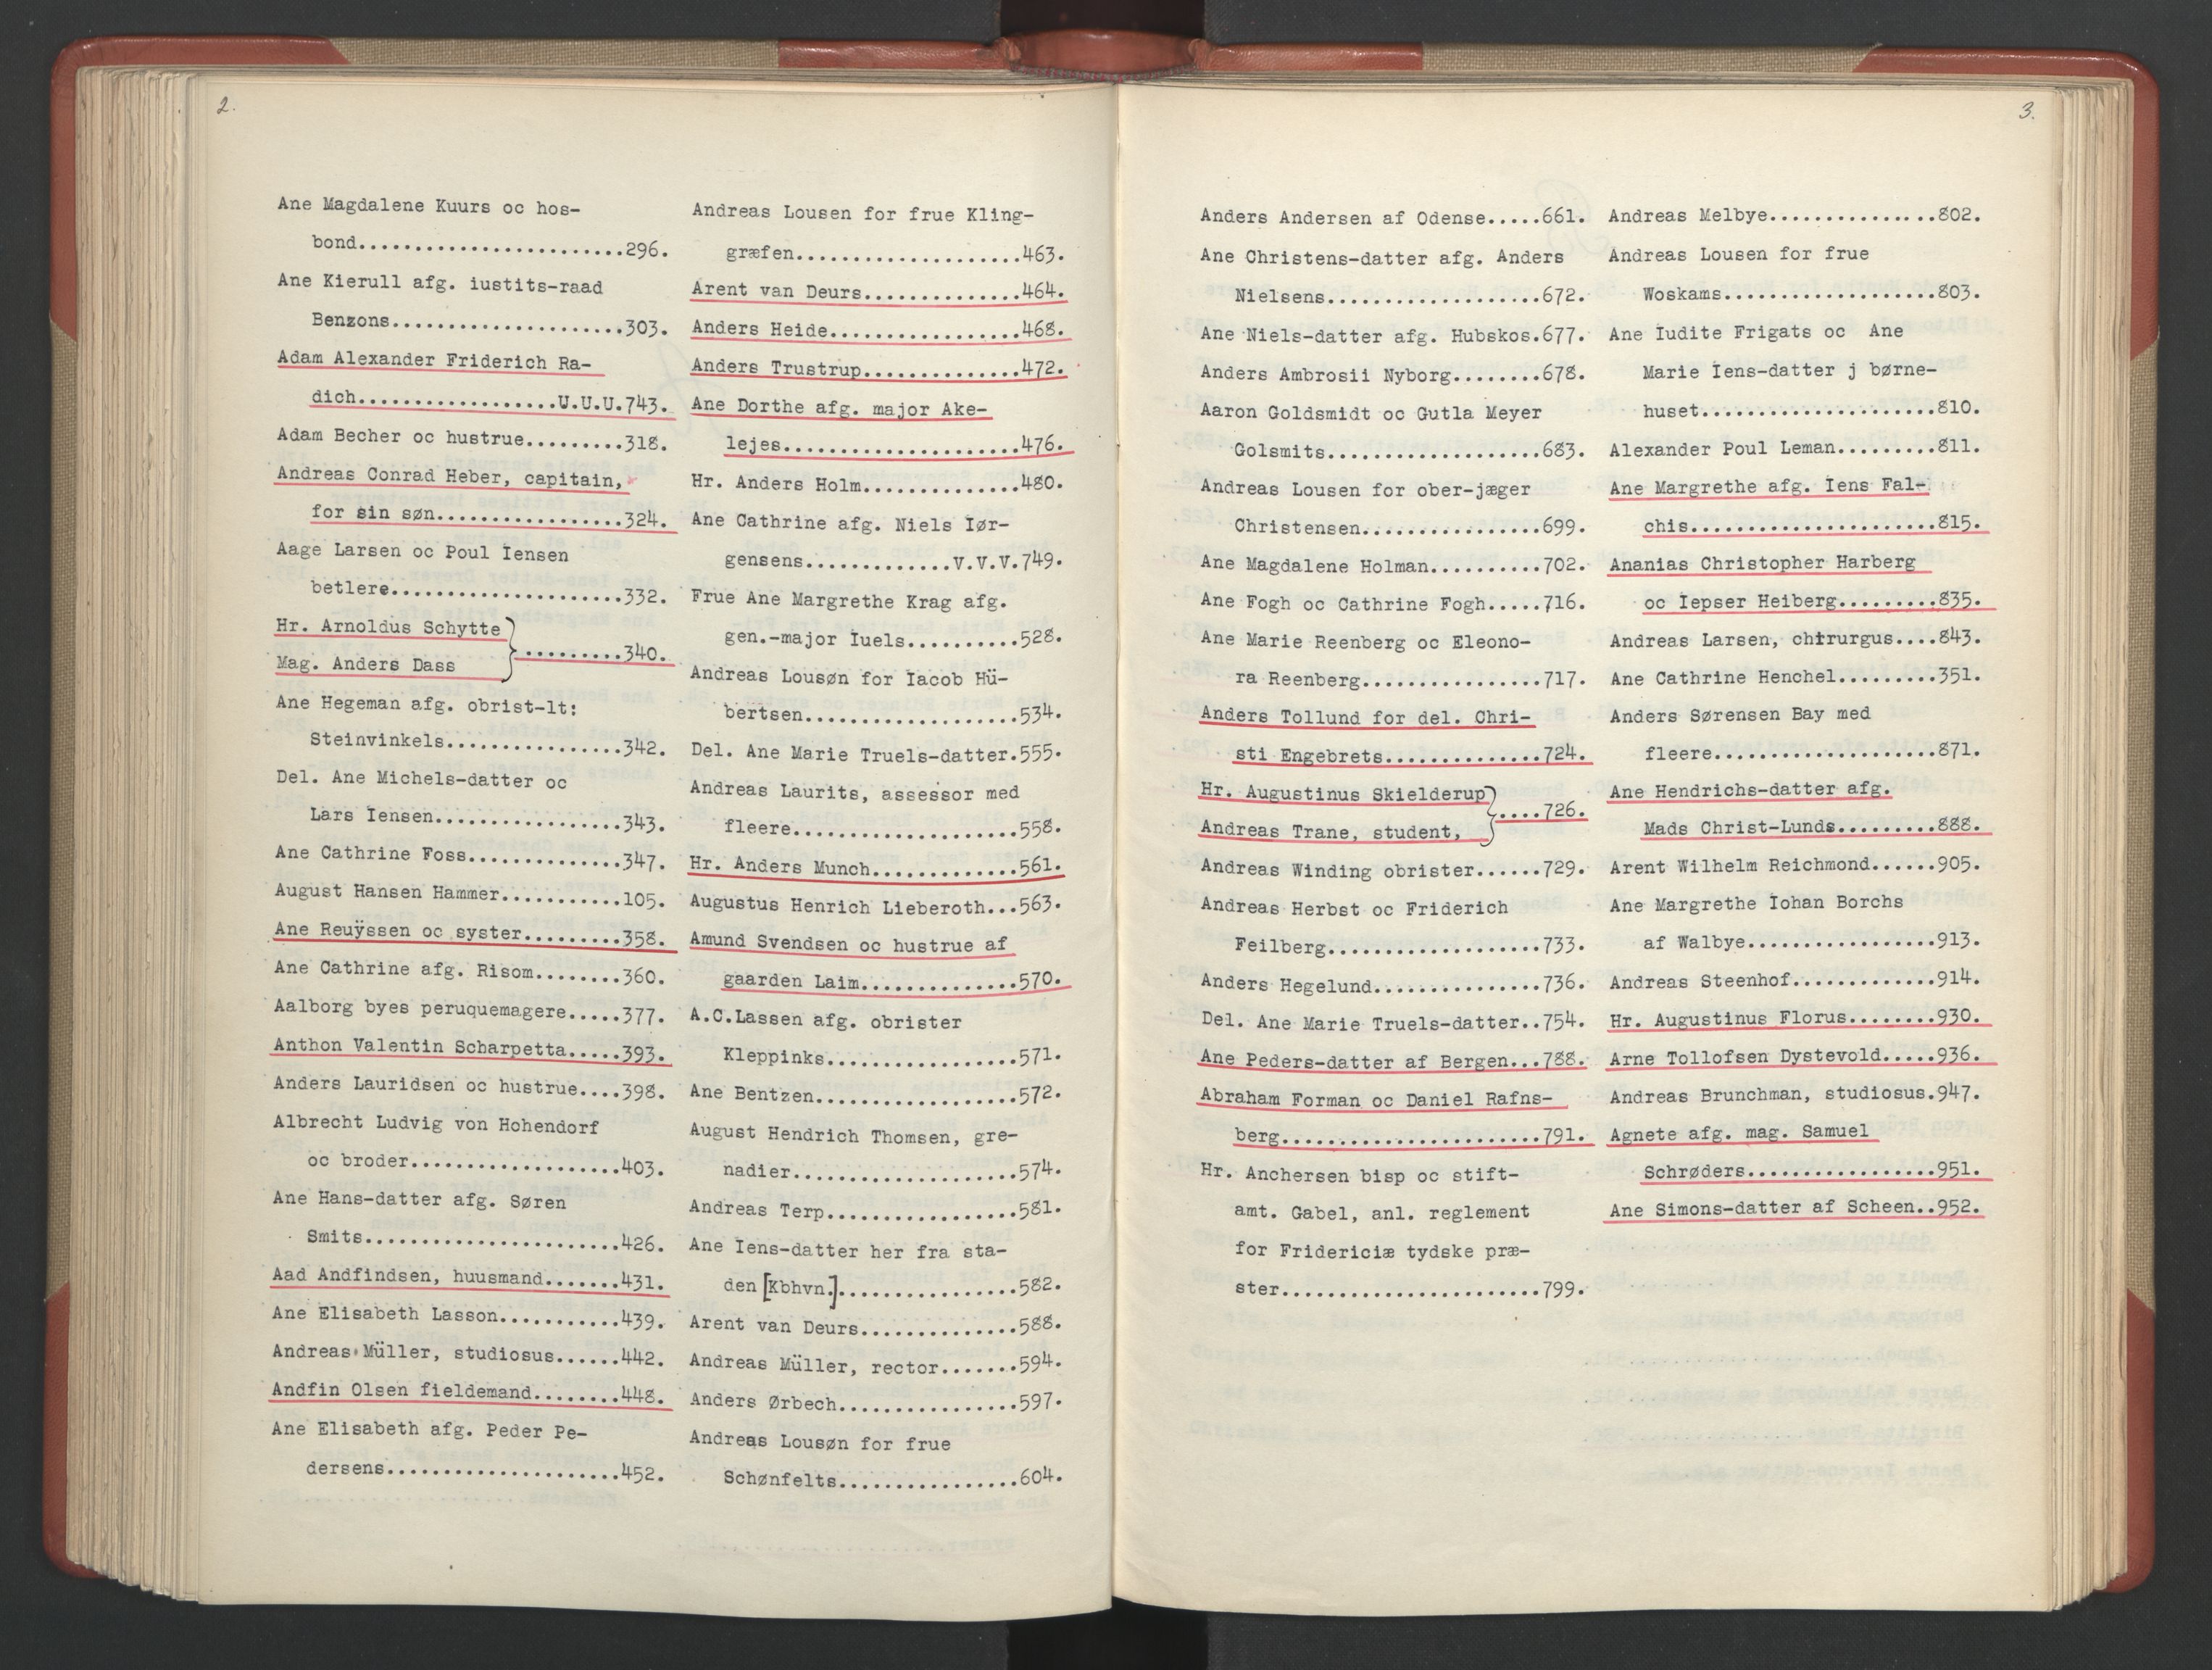 2.
Ane Magdalene Kuurs oc hos-
bond........................296.
Ane Kierull afg. iustits-raad
Benzons.....................303.
Adam Alexander Friderich Ra-
dich..................U.U.U.743.
Adam Becher oc hustrue.........318.
Andreas Conrad Heber, capitain,
for sin søn.................324.
Aage Larsen oc Poul Iensen
betlere.....................332.
Hr. Arnoldus Schytte
Mag. Anders Dass
} .........340.
Ane Hegeman afg. obrist-lt:
Steinvinkels................342.
Del. Ane Michels-datter oc
Lars Iensen.................343.
Ane Cathrine Foss..............347.
August Hansen Hammer...........105.
Ane Reuÿssen oc syster.........358.
Ane Cathrine afg. Risom........360.
Aalborg byes peruquemagere.....377.
Anthon Valentin Scharpetta.....393.
Anders Lauridsen oc hustrue....398.
Albrecht Ludvig von Hohendorf
oc broder...................403.
Ane Hans-datter afg. Søren
Smits.......................426.
Aad Andfindsen, huusmand.......431.
Ane Elisabeth Lasson...........439.
Andreas Müller, studiosus......442.
Andfin Olsen fieldemand........448.
Ane Elisabeth afg. Peder Pe-
dersens.....................452.
Andreas Lousen for frue Kling-
græfen....................463.
Arent van Deurs..............464.
Anders Heide.................468.
Anders Trustrup..............472.
Ane Dorthe afg. major Ake-
lejes.....................476.
Hr. Anders Holm..............480.
Ane Cathrine afg. Niels Iør-
gensens.............V.V.V.749.
Frue Ane Margrethe Krag afg.
gen.-major Iuels..........528.
Andreas Lousøn for Iacob Hü-
bertsen...................534.
Del. Ane Marie Truels-datter.555.
Andreas Laurits, assessor med
fleere....................558.
Hr. Anders Munch.............561.
Augustus Henrich Lieberoth...563.
Amund Svendsen oc hustrue af
gaarden Laim..............570.
A.C.Lassen afg. obrister
Kleppinks.................571.
Ane Bentzen..................572.
August Hendrich Thomsen, gre-
nadier....................574.
Andreas Terp.................581.
Ane Iens-datter her fra sta-
den [Kbhvn.]................582.
Arent van Deurs..............588.
Andreas Müller, rector.......594.
Anders Ørbech................597.
Andreas Lousøn for frue
Schønfelts................604.
3.
Anders Andersen af Odense.....661.
Ane Christens-datter afg. Anders
Nielsens...................672.
Ane Niels-datter afg. Hubskos.677.
Anders Ambrosii Nyborg........678.
Aaron Goldsmidt oc Gutla Meyer
Golsmits...................683.
Andreas Lousen for ober-jæger
Christensen................699.
Ane Magdalene Holman..........702.
Ane Fogh oc Cathrine Fogh.....716.
Ane Marie Reenberg oc Eleono-
ra Reenberg................717.
Anders Tollund for del. Chri-
sti Engebrets..............724.
Hr. Augustinus Skielderup
Andreas Trane, student,
} ....726.
Andreas Winding obrister......729.
Andreas Herbst oc Friderich
Feilberg...................733.
Anders Hegelund...............736.
Del. Ane Marie Truels-datter..754.
Ane Peders-datter af Bergen...788.
Abraham Forman oc Daniel Rafns-
berg.......................791.
Hr. Anchersen bisp oc stift-
amt. Gabel, anl. reglement
for Fridericiæ tydske præ-
ster.......................799.
Andreas Melbye...............802.
Andreas Lousen for frue
Woskams...................803.
Ane Iudite Frigats oc Ane
Marie Iens-datter j børne-
huset.....................810.
Alexander Poul Leman.........811.
Ane Margrethe afg. Iens Fal-
chis......................815.
Ananias Christopher Harberg
oc Iepser Heiberg.........835.
Andreas Larsen, chirurgus....843.
Ane Cathrine Henchel.........351.
Anders Sørensen Bay med
fleere....................871.
Ane Hendrichs-datter afg.
Mads Christ-Lunds.........888.
Arent Wilhelm Reichmond......905.
Ane Margrethe Iohan Borchs
af Walbye.................913.
Andreas Steenhof.............914.
Hr. Augustinus Florus........930.
Arne Tollofsen Dystevold.....936.
Andreas Brunchman, studiosus.947.
Agnete afg. mag. Samuel
Schrøders.................951.
Ane Simons-datter af Scheen..952.